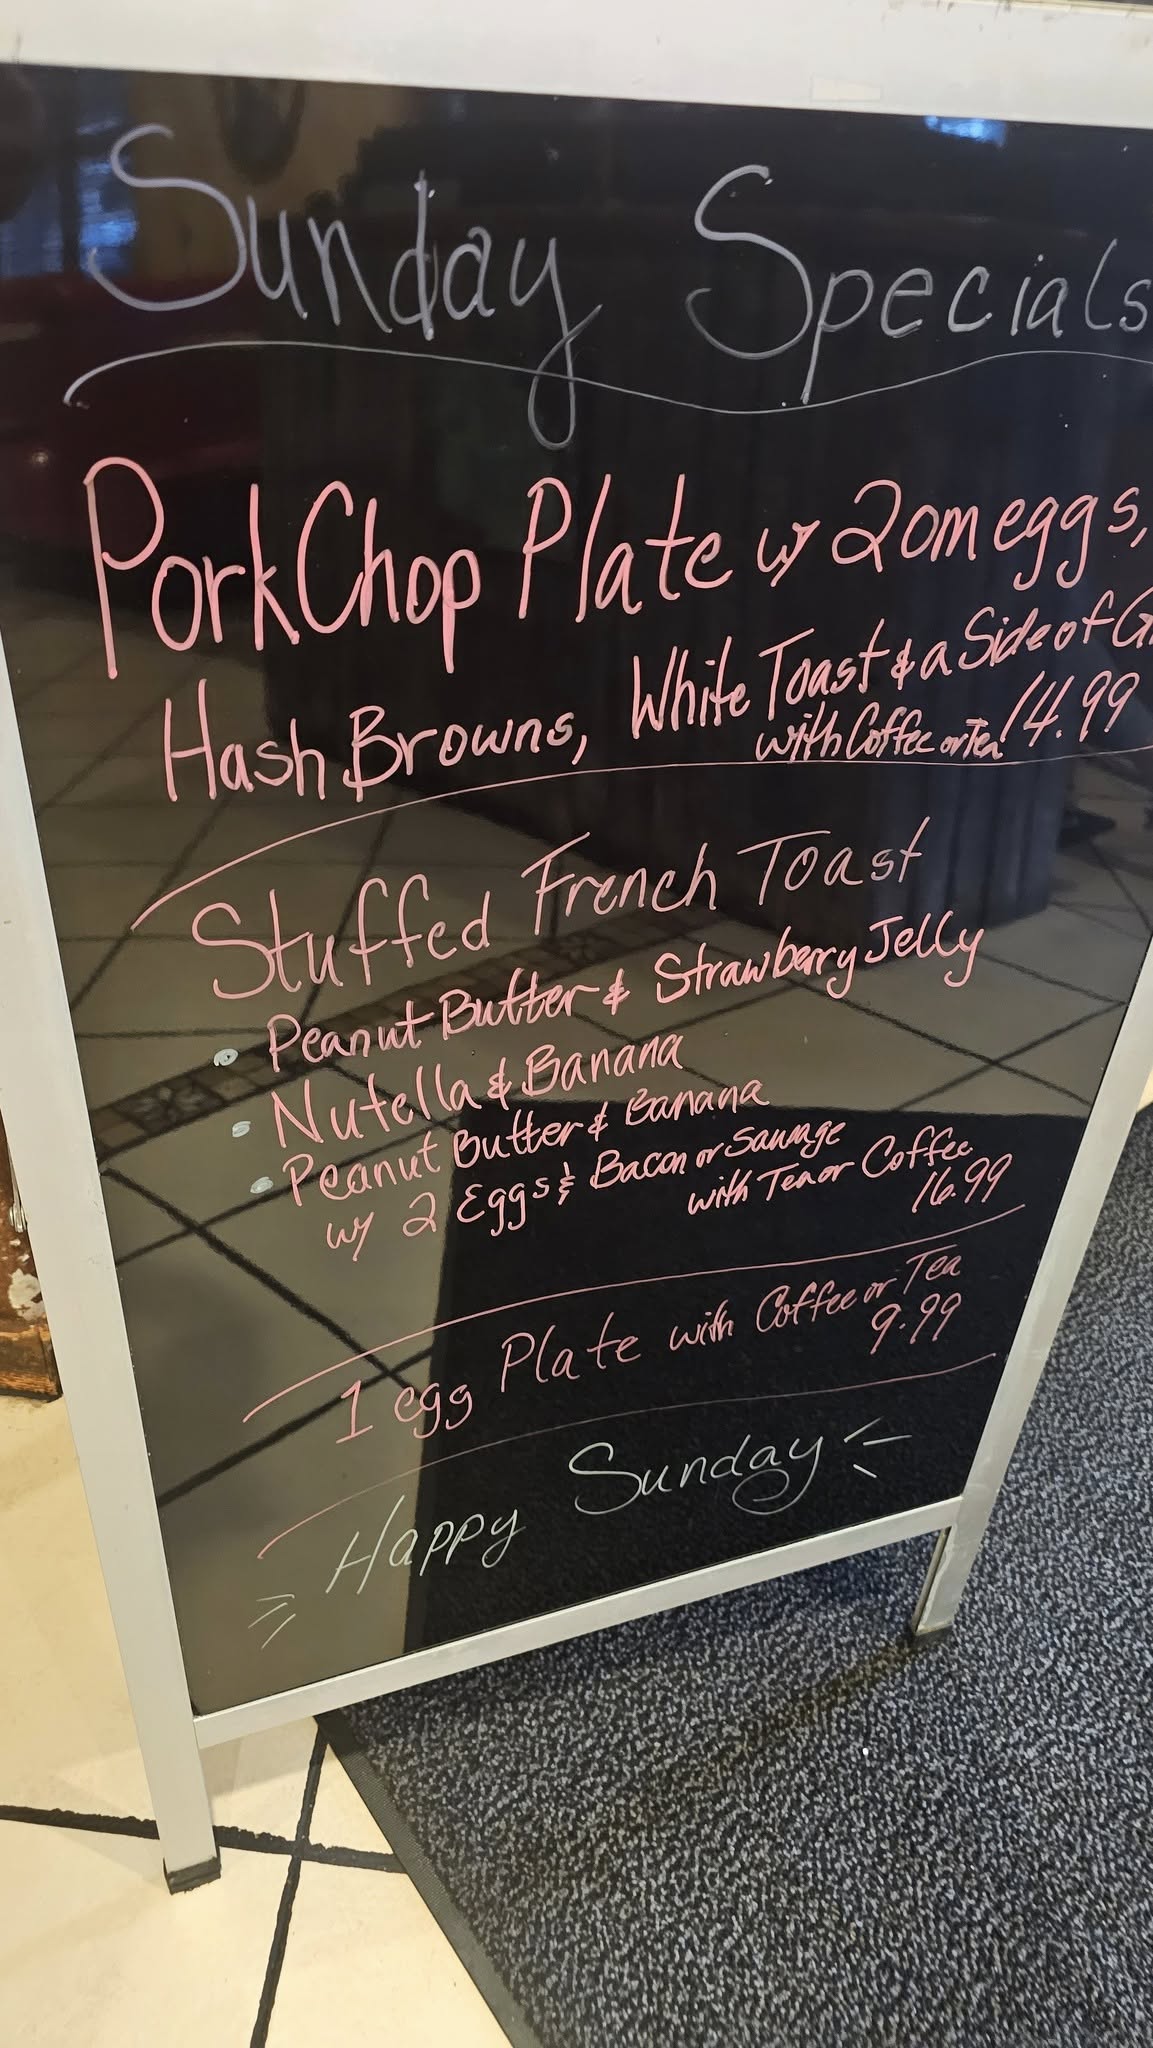 Sunday Specials
Pork Chop Plate w/ 2 om eggs,
Hash Browns, White Toast & a Side of
with Coffee or Tea 14.99
Stuffed French Toast
• Peanut Butter & Strawberry Jelly
• Nutella & Banana
• Peanut Butter & Banana
w/ 2 Eggs & Bacon or Sausage
with Tea or Coffee
16.99
1 egg Plate with Coffee or Tea
9.99
Happy Sunday